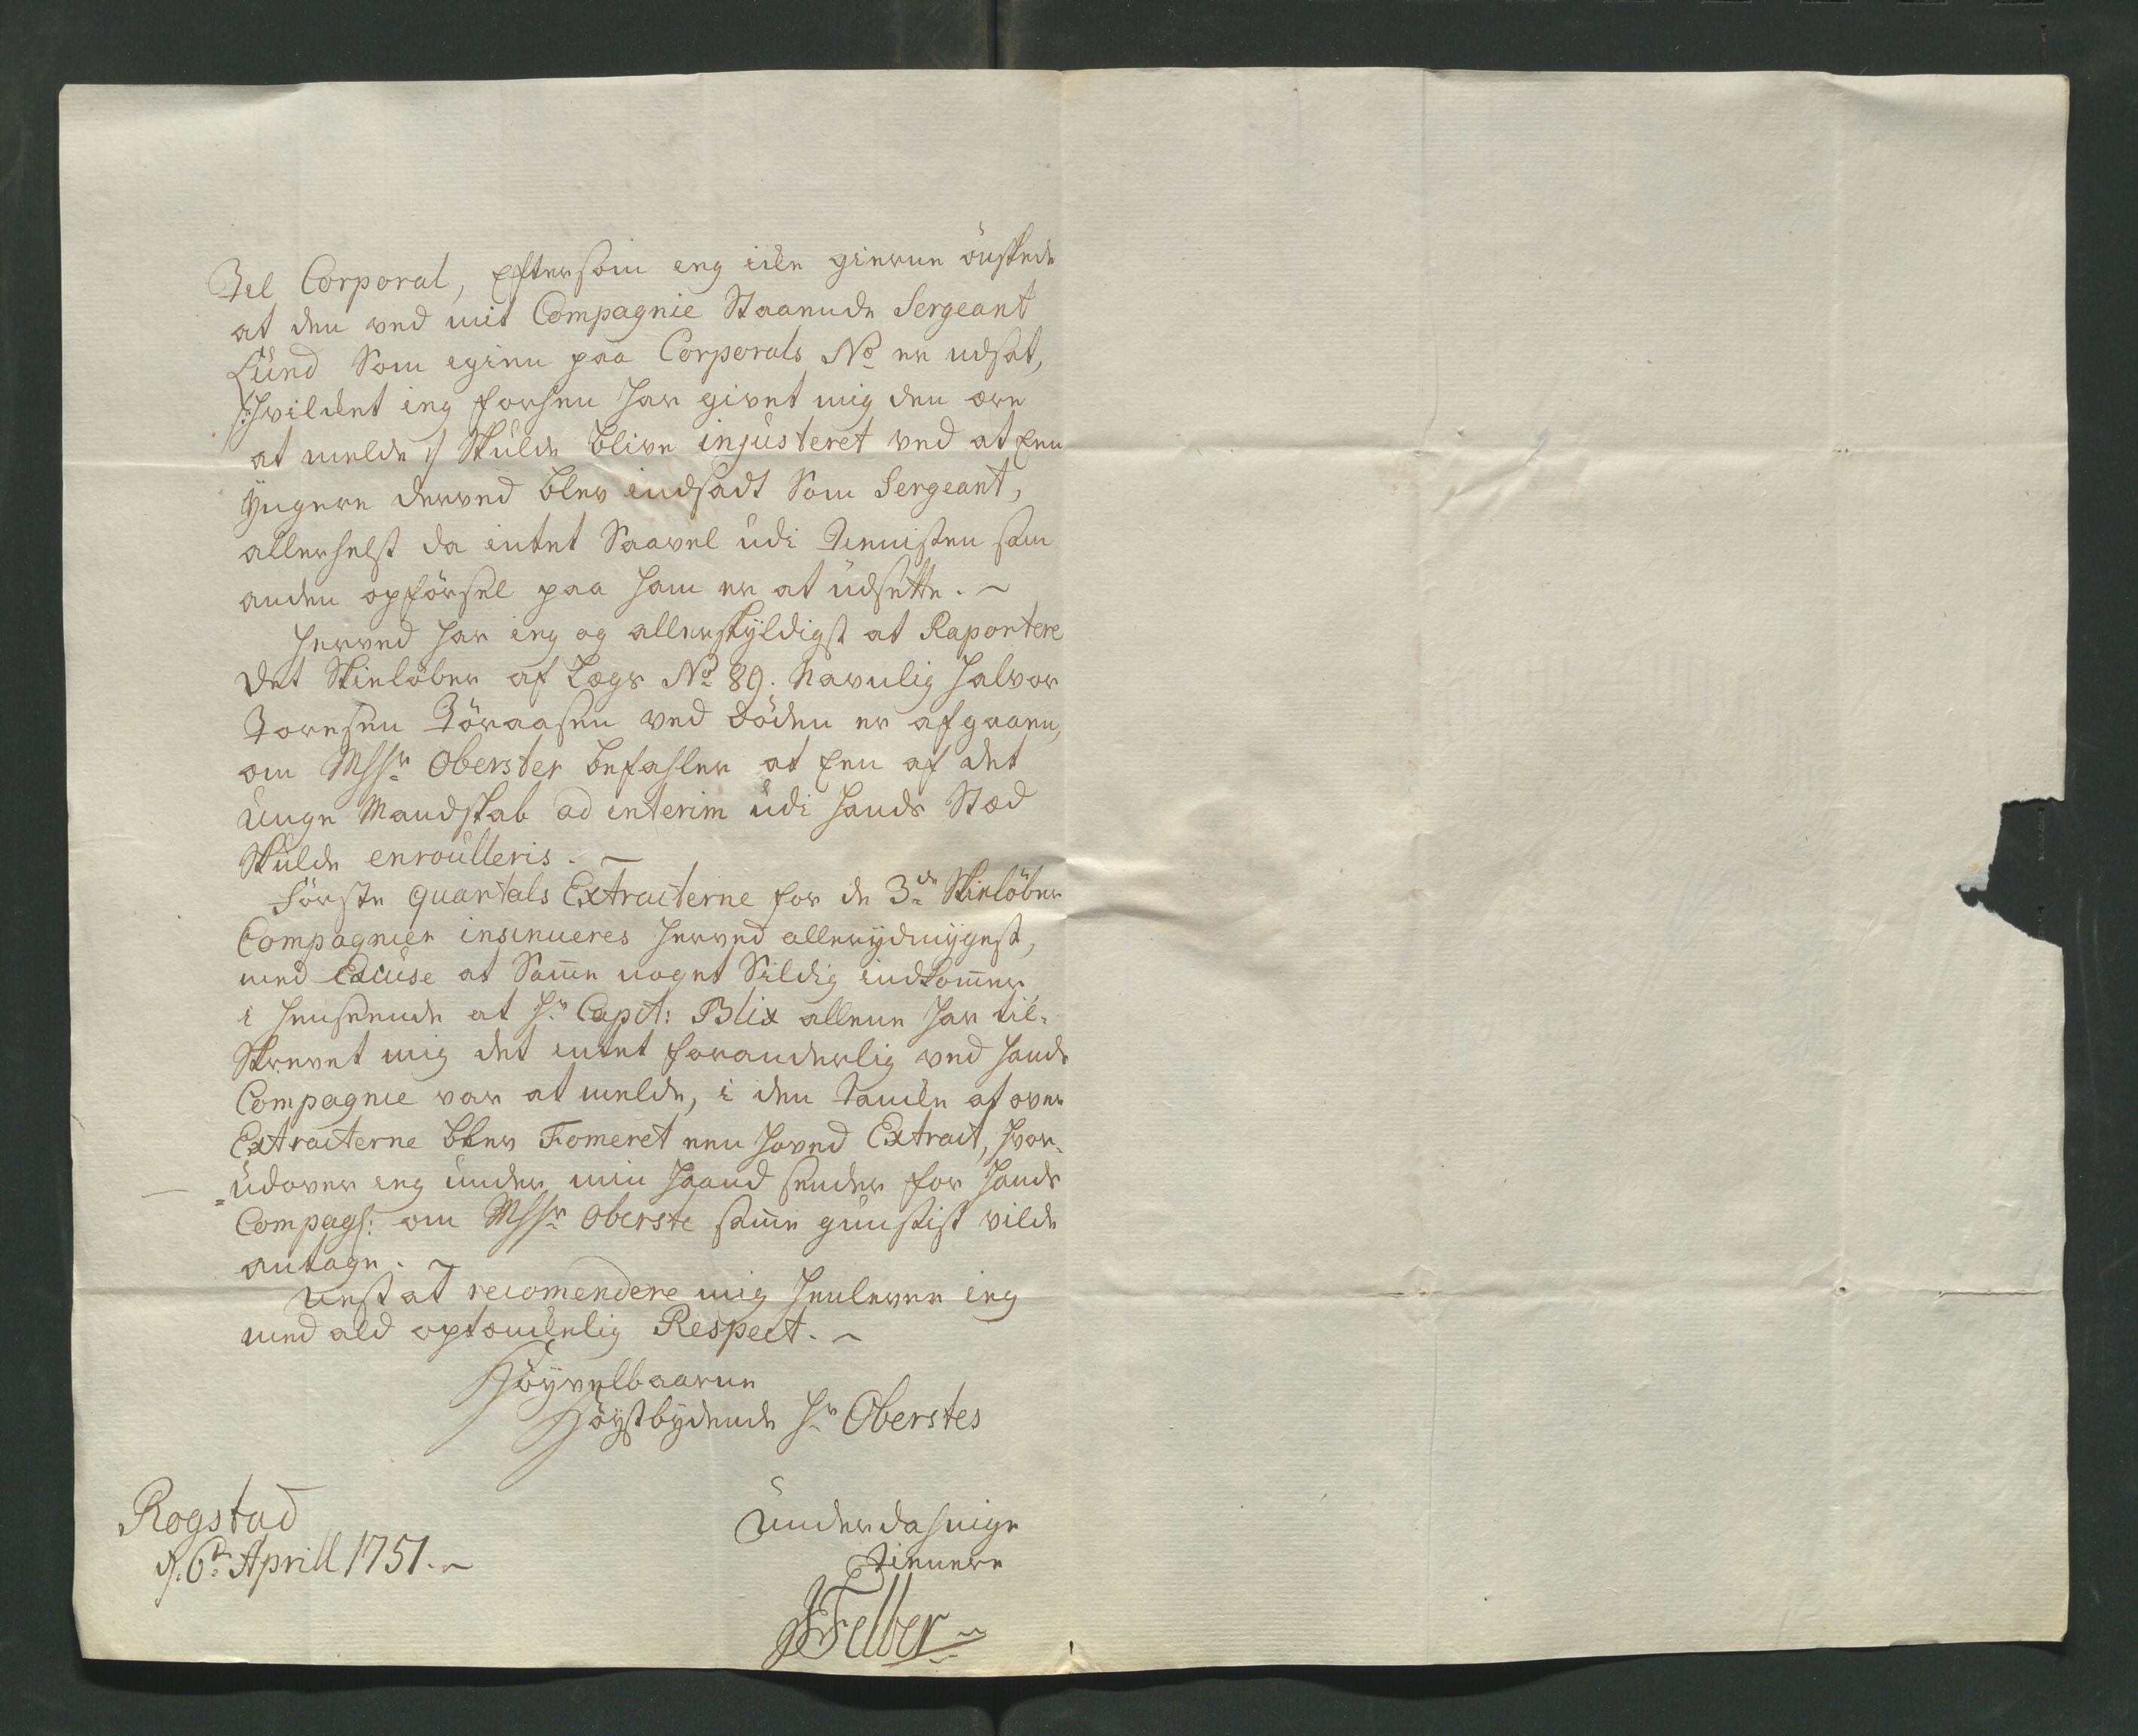 Til Corporal, eftersom ieg icke gierne önskede
at den ved mit Compagnie Staaende Sergeant
Lünd Som igien paa Corporals No er udsat,
/:hvilket ieg forhen har givet mig den ære
at melde:/ Skulde blive injusteret ved at een
Yngere derved blev indsadt Som Sergeant,
allerhelst da intet Saavel udi Tienisten som
anden opførsel paa ham er at udsette.
Herved har ieg og allerskyldigst at Raportere
det Skieløber af Lægs No 89. Navnlig Halvor
Toresen Töraasen ved döden er afgaaen,
om Hssr Oberster befahler at een af det
Unge Mandskab ad interim udi hands Stæd
Skulde enroulleris.
Förste quartals Extracterne for de 3de Skielöber
Compagnier insinueres herved allerydmygest,
med Excuse at Same noget Sildig indkommer
i henseende at Hr Capit: Blix allene har til-
Skrevet mig det intet foranderlig ved hands
Compagnie var at melde, i den Tancke at over
Extracterne blev Fomeret een hoved Extract, hvor-
=udover ieg under min Haand sender for hands
Compags: om Hssr Oberste same gunstist vilde
antage.
Nest at recomendere mig henlever ieg
med ald optænckelig Respect.
Höyvelbaarne
Höystbydende Hr Oberstes
Underdahnige
Tienere
Rogstad
d. 6te Aprill 1751.
Felber